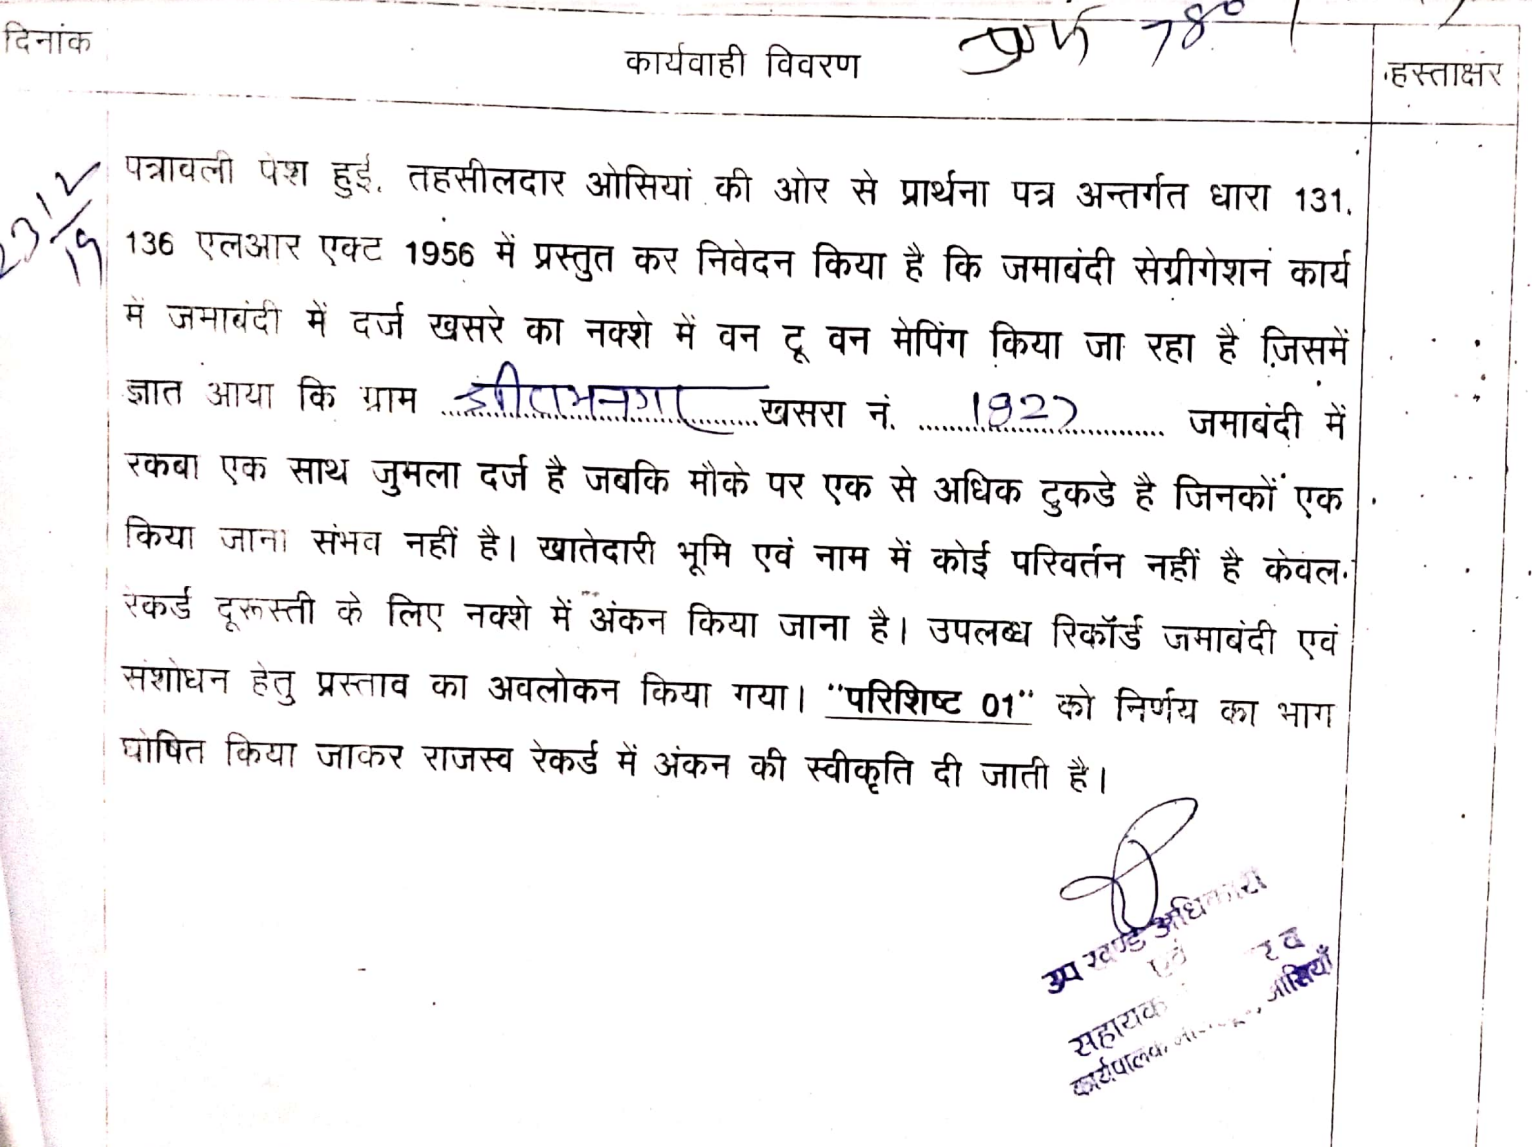 दिनांक
कार्यवाही विवरण
780
हस्ताक्षर
23/12/19
पत्रावली पेश हुई. तहसीलदार ओसियां की ओर से प्रार्थना पत्र अन्तर्गत धारा 131.
136 एलआर एक्ट 1956 में प्रस्तुत कर निवेदन किया है कि जमाबंदी सेग्रीगेशन कार्य
में जमाबंदी में दर्ज खसरे का नक्शे में वन टू वन मेपिंग किया जा रहा है जिसमें
ज्ञात आया कि ग्राम .......... खसरा नं. .......... जमाबंदी में
रकबा एक साथ जुमला दर्ज है जबकि मौके पर एक से अधिक टुकडे है जिनकों एक
किया जाना संभव नहीं है। खातेदारी भूमि एवं नाम में कोई परिवर्तन नहीं है केवल
रेकर्ड दूरूस्ती के लिए नक्शे में अंकन किया जाना है। उपलब्ध रिकॉर्ड जमाबंदी एवं
संशोधन हेतु प्रस्ताव का अवलोकन किया गया। "परिशिष्ट 01" को निर्णय का भाग
घोषित किया जाकर राजस्व रेकर्ड में अंकन की स्वीकृति दी जाती है।
उप खण्ड अधिकारी
एवं
सहायक
कार्यपालक ओसियाँ